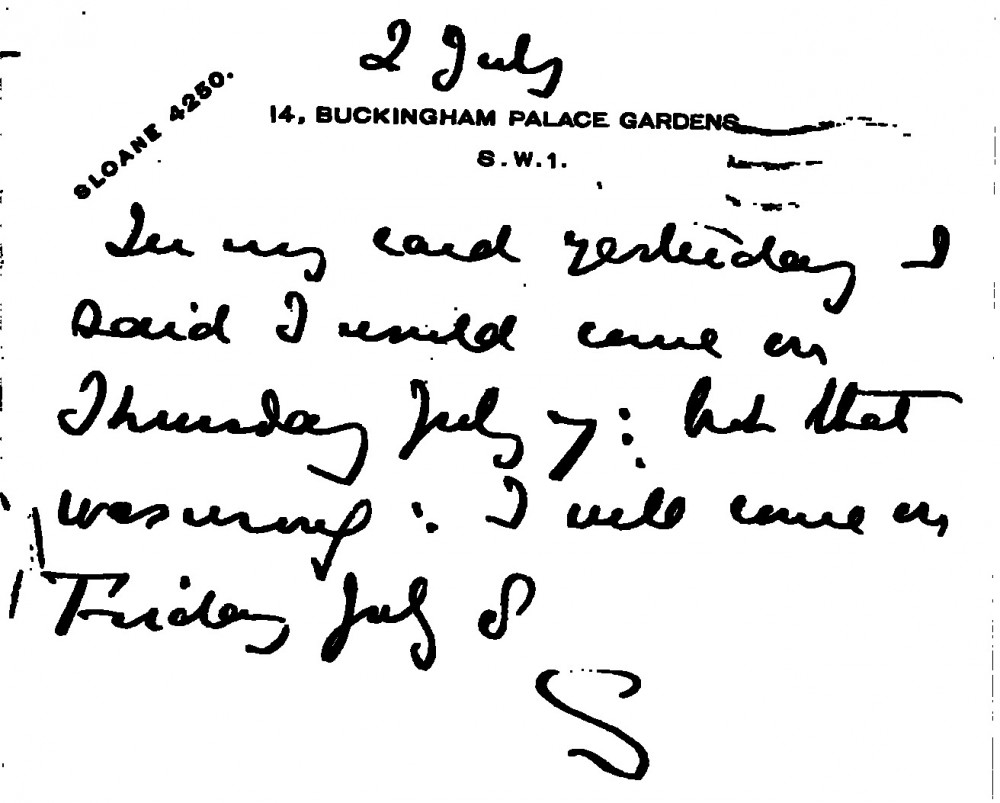 2 July
SLOANE 4250.
14, BUCKINGHAM PALACE GARDENS
S.W.1.
In my card yesterday I
said I would come on
Thursday July 7: but that
was wrong: I will come on
Friday July 8
S